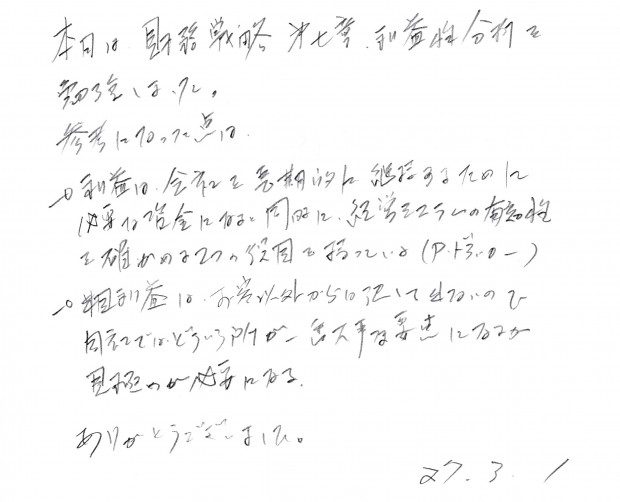 本日は、財務戦略 第七章、利益性分析を
勉強しました。
参考になった点は、
→○利益は、会社を長期的に継続するために
必要な資金になると同時に、経営システムの有効性
を確かめる2つの役目を持っている(P.ドラッカー)
→○粗利益は、お客以外からは絶して出ないので
自社ではどういう所が一番大事な要点になるか
見極めが必要になる。
ありがとうございました。
27.3.1